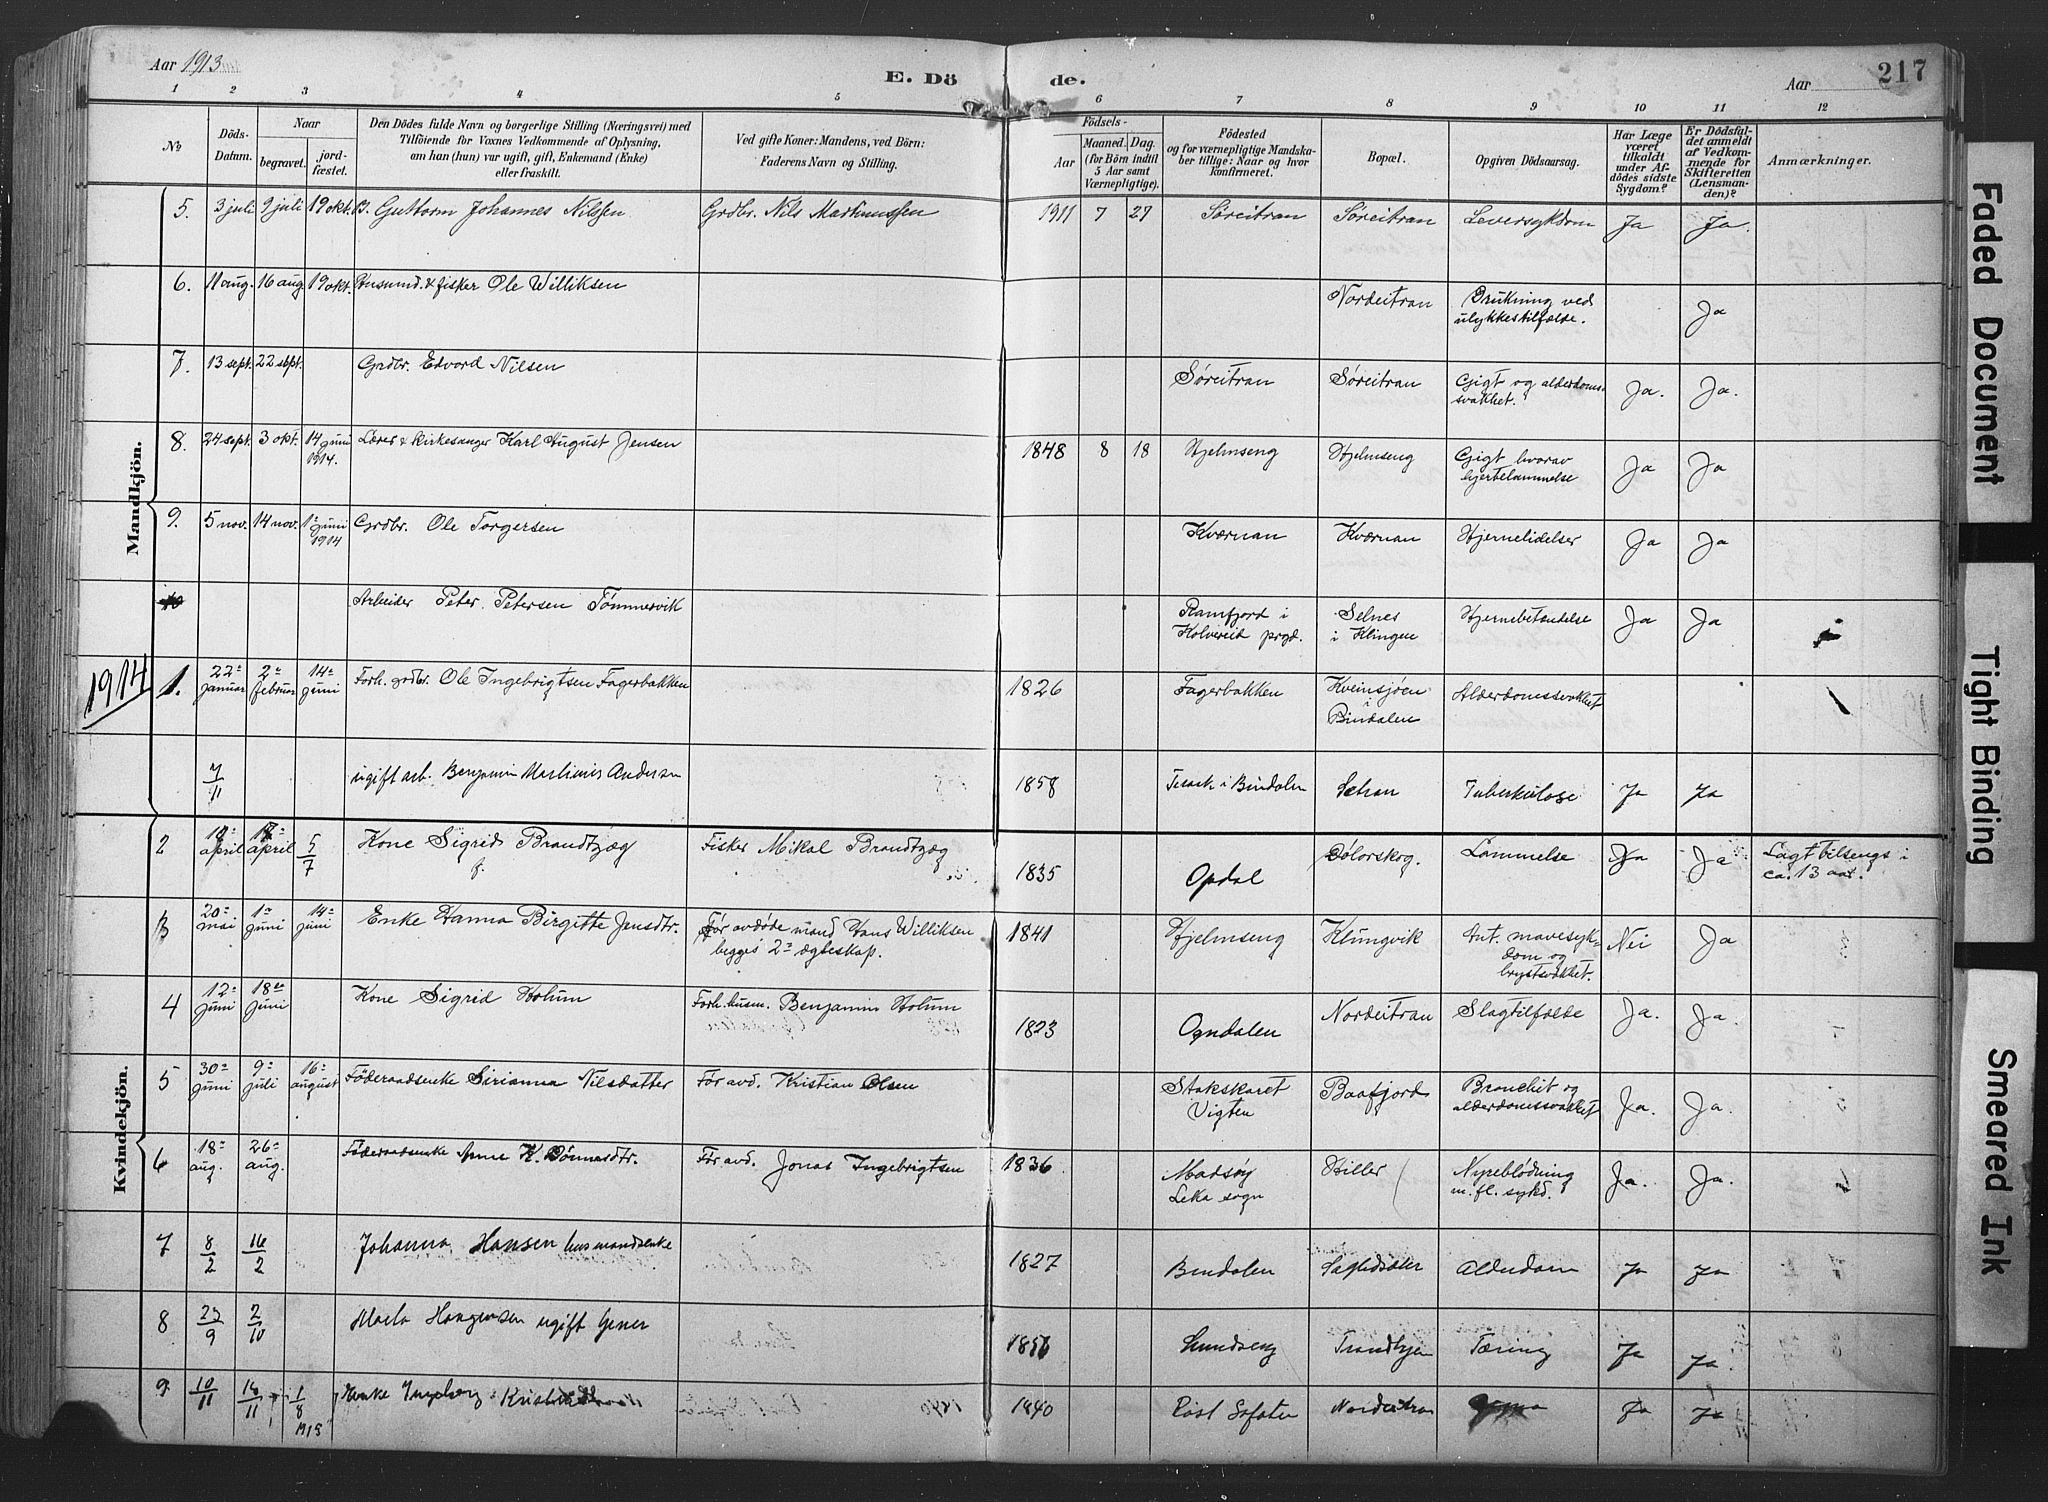 Aar 1913
E. Dö
de.
Aar
217
1 2 3 4 5 6 7 8 9 10 11 12
No
Döds-
Datum.
Naar
begravet.
jord-
fæstet.
Den Dödes fulde Navn og borgerlige Stilling (Næringsvei) med
Tilföiende for Voxnes Vedkommende af Oplysning,
om han (hun) var ugift, gift, Enkemand (Enke)
eller fraskilt.
Ved gifte Koner: Mandens, ved Börn:
Faderens Navn og Stilling.
Födsels-
Aar
Maaned. Dag.
(for Börn indtil
5 Aar samt
Værnepligtige).
Födested
og for værnepligtige Mandska-
ber tillige: Naar og hvor
konfirmeret.
Bopæl.
Opgiven Dödsaarsag.
Har Læge
været
tilkaldt
under Af-
dödes sidste
Sygdom?
Er Dödsfal-
det anmeldt
af Vedkom-
mende for
Skifteretten
(Lensman-
den)?
Anmærkninger.
Mandkjön.
5. 3 juli 9 juli 19 okt. B. Guttorm Johannes Nilssen Grdbr. Nils Markussen 1911 7 27 Søreitran Søreitran Leversykdom Ja Ja.
6. 11 aug. 16 aug. 19 okt. Husmd. & fisker Ole Williksen Nordeitran Drukning ved
ulykkestilfælde. Ja
7. 13 sept. 22 sept. Grdbr. Edvord Nilsen Søreitran Søreitran Gigt og alderdoms-
svakhet. Ja. Ja.
8. 24 sept. 3 okt. 14 juni
1914. Lærer & kirkesanger Karl August Jensen 1848 8 18 Hjelmseng Hjelmseng Gigt hvorav
hjertelammelse Ja Ja
9. 5 nov. 14 nov. 1ª juni
1914 Grdbr. Ole Torgersen Kværnan Kværnan Hjernelidelser Ja Ja
10 Arbeider Peter Petersen Tømmervik Ramfjord i
Kolvereid prgd. Selnes
i Klingen Hjernebetændelse Ja Ja
1914
1. 22ª
januar 2ª
februar 14ª
juni Forh. grdbr. Ole Ingebrigtsen Fagerbakken 1826 Fagerbakken Kveinsjøen
i
Bindalen Alderdomssvakhet
7/11 ugift arb. Benjamin Martinus Andersen 1858 Terack i Bindalen Setran Tuberkulose Ja Ja
Kvindekjön.
2 april april 5/7 Kone Sigrid Brandtzæg
f. Fisker Mikal Brandtzæg 1835 Opdal Dølorskog. Lammelse Ja Ja Lagt tilsengs i
ca. 13 aar.
3 20ª
mai 1ª
juni 14ª
juni Enke Hanna Birgitte Jensdtr. Før avdøde mand Hans Williksen
begges 2ª ægteskap. 1841 Hjelmseng Klungvik Ant. mavesyk-
dom og
brystsvakhet. Nei Ja
4 12ª
juni 18de
juni Kone Sigrid Holum Forh. husm. Benjamin Holum 1823 Ogndalen Nordeitran Slagtilfælde Ja. Ja.
5 30ª
juni 9ª
juli 16ª
august Føderaadsenke Sirianna Nilsdatter Før avd. Kristian Olsen Stakskaret
Vigten Baafjord Bronchit og
alderdomssvakhet Ja. Ja.
6 18ª
aug. 26ª
aug. Føderaadsenke Anne K. Dønnasdtr. Før avd. Jonas Ingebrigtsen 1836 Madsøy
Leka sogn Hiller Nyreblødning
m. fl. sykd. Ja. Ja.
7 8/2 16/2 Johanna Hansen husmandsenke 1827 Bindalen Alderdom Ja Ja
8 23/9 2/10 Haagensen ugift 1856 Sundseng Tæring Ja Ja.
9 10/11 16/11 1/8
1915 Enke Ingeborg 1840 Røst Lofoten Nordeitran Ja Ja
Faded Document
Tight Binding
Smeared Ink